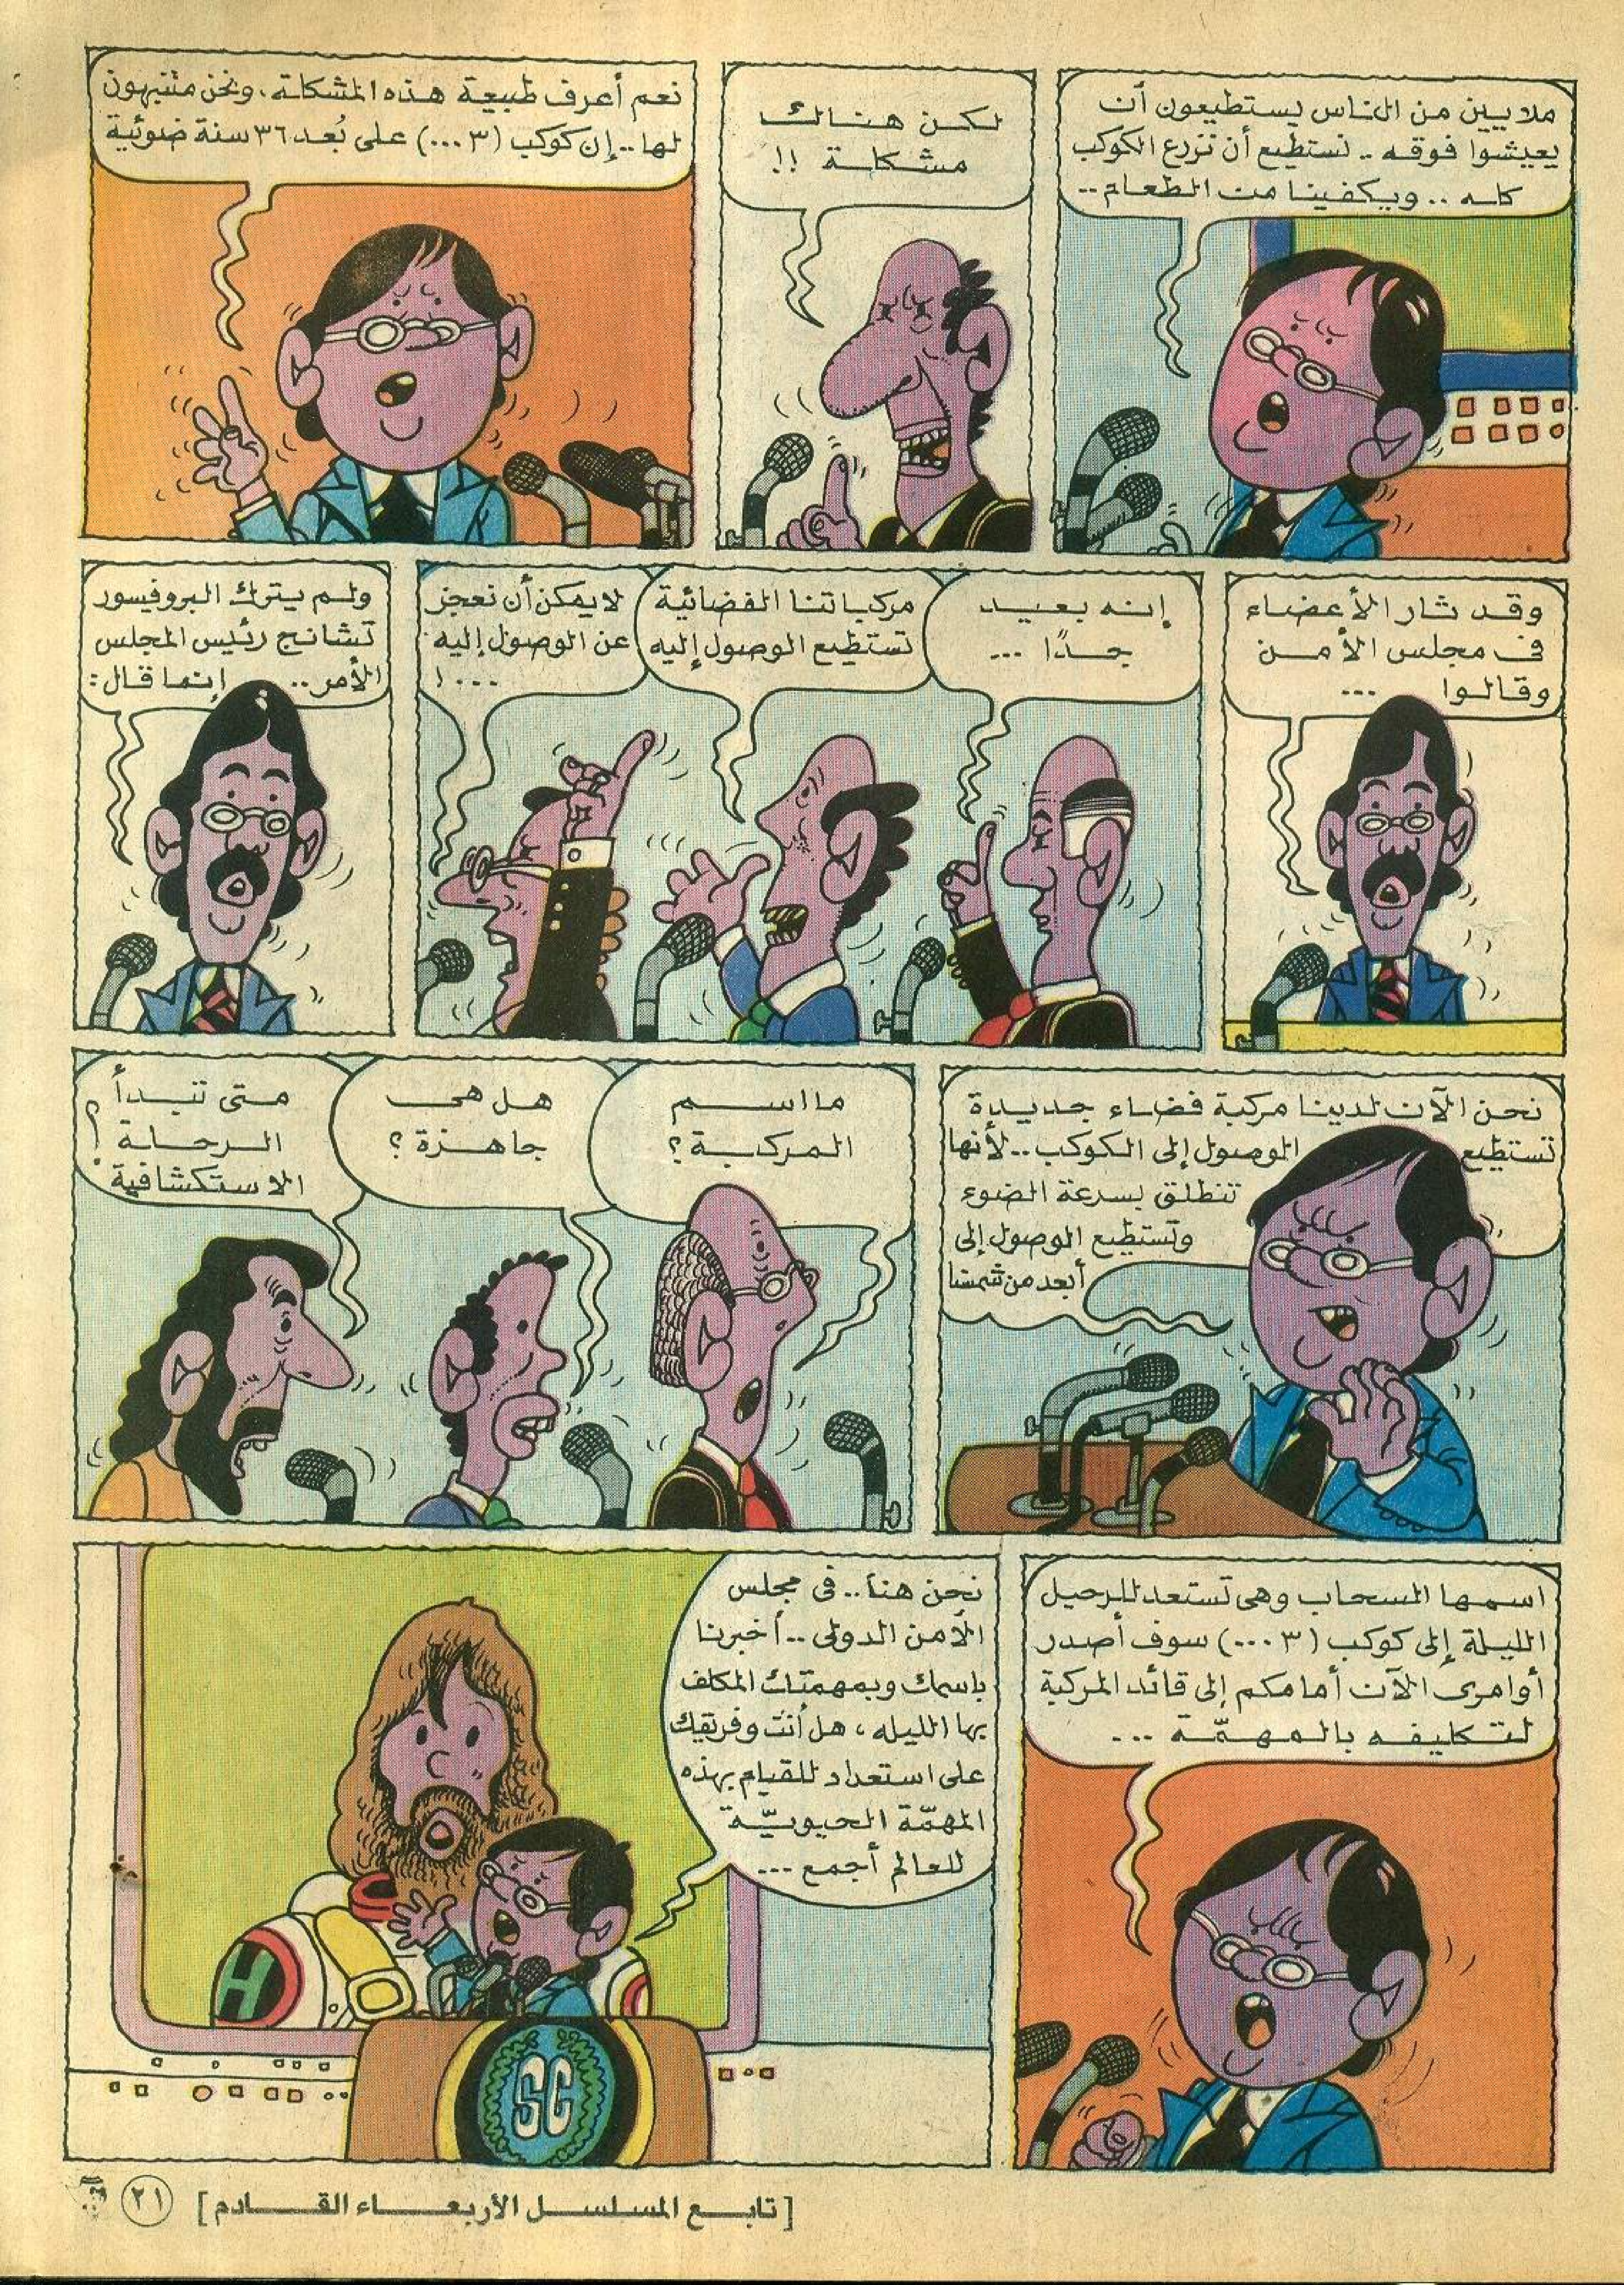 ملايين من الناس يستطيعون أن
يعيشوا فوقه .. نستطيع أن نزرع الكوكب
كله .. ويكفينا من الطعام ..
لكن هنالك
مشكلة !!
نعم أعرف طبيعة هذه المشكلة، ونحن متنبهون
لها .. إن كوكب (٣٠٠٠) على بُعد ٣٦ سنة ضوئية
وقد ثار الأعضاء
فى مجلس الأمن
وقالوا ...
إنه بعيد
جدًا ...
مركباتنا الفضائية
تستطيع الوصول إليه
لا يمكن أن نعجز
عن الوصول إليه
... !
ولم يترك البروفيسور
تشانج رئيس المجلس
الأمر .. إنما قال :
نحن الآن لدينا مركبة فضاء جديدة
تستطيع الوصول إلى الكوكب .. لأنها
تنطلق بسرعة الضوء
وتستطيع الوصول إلى
أبعد من شمسنا
ما اسم
المركبة ؟
هل هى
جاهزة ؟
متى تبدأ
الرحلة
الاستكشافية ؟!
اسمها السحاب وهى تستعد للرحيل
الليلة إلى كوكب (٣٠٠٠) سوف أصدر
أوامرى الآن أمامكم إلى قائد المركبة
لتكليفه بالمهمّة ...
نحن هنا .. فى مجلس
الأمن الدولى .. أخبرنا
باسمك وبمهمتك المكلف
بها الليله ، هل أنت وفريقك
على استعداد للقيام بهذه
المهمّة الحيويّة
للعالم أجمع ...
H
SC
[ تابع المسلسل الأربعاء القادم ]
٢١